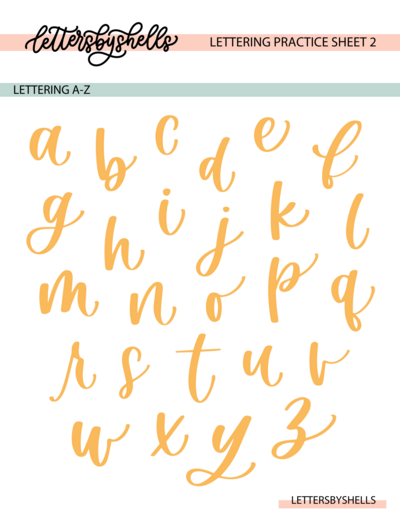 lettersbyshells
LETTERING PRACTICE SHEET 2
LETTERING A-Z
a b c d e f
g h i j k l
m n o p q
r s t u v
w x y z
LETTERSBYSHELLS